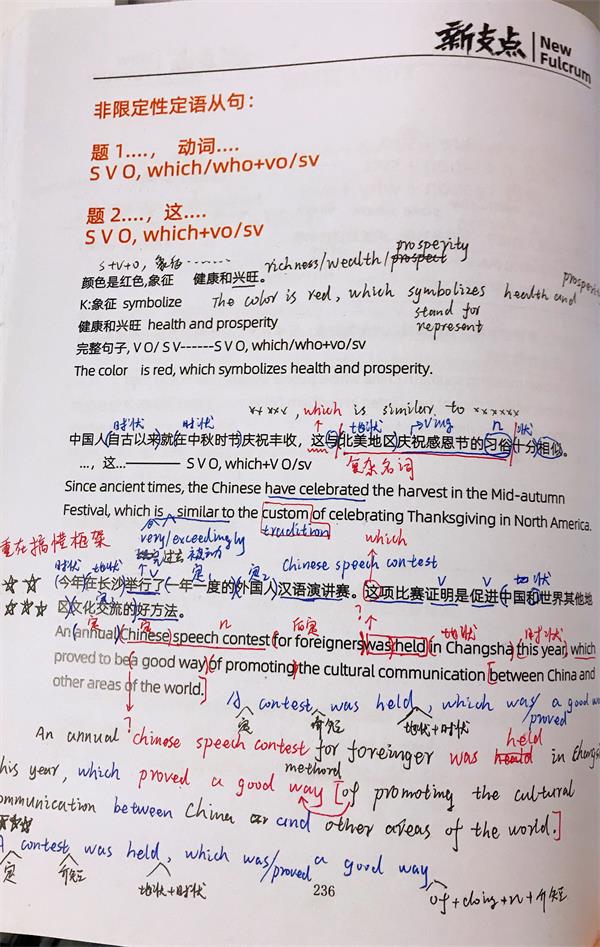 新支点 New
Fulcrum
非限定性定语从句：
题 1....， 动词....
S V O, which/who+vo/sv
题 2....，这....
S V O, which+vo/sv
S+V+O, 象征
richness/wealth/prospect prosperity
颜色是红色,象征 健康和兴旺。
K:象征 symbolize The color is red, which symbolizes health and prosperity
stand for
健康和兴旺 health and prosperity represent
完整句子, V O/ S V------S V O, which/who+vo/sv
The color is red, which symbolizes health and prosperity.
xxxxx, which is similar to xxxxxx
时状 时状 地状 Ving n 状
中国人自古以来就在中秋时节庆祝丰收，这与北美地区庆祝感恩节的习俗十分相似。
复杂名词
...，这...———— S V O, which+V O/sv
Since ancient times, the Chinese have celebrated the harvest in the Mid-autumn
Festival, which is similar to the custom of celebrating Thanksgiving in North America.
very/exceedingly tradition
重在搞懂框架
过去 被动 Chinese speech contest which
时状 地状 V 定1 定2 V V 地状
今年在长沙举行了一年一度的外国人汉语演讲赛。这项比赛证明是促进中国和世界其他地
区文化交流的好方法。
定 定 n 后定 ? 地状 时状
An annual Chinese speech contest for foreigners was held in Changsha this year, which
proved to be a good way of promoting the cultural communication between China and
other areas of the world.
A contest was held, which was/proved a good way
定 介短 地状+时状
?
An annual Chinese speech contest for foreinger was held in Changsha
this year, which proved a good way methord of promoting the cultural
communication between China or and other areas of the world.
A contest was held, which was/proved a good way
定 介短 地状+时状 of+doing+n+介短
236